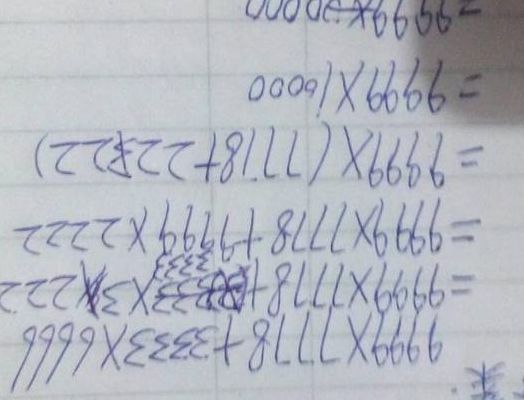 9999×7778+3333×6666
=9999×7778+3333×3×222
=9999×7778+9999×2222
=9999×(7778+2222)
=9999×10000